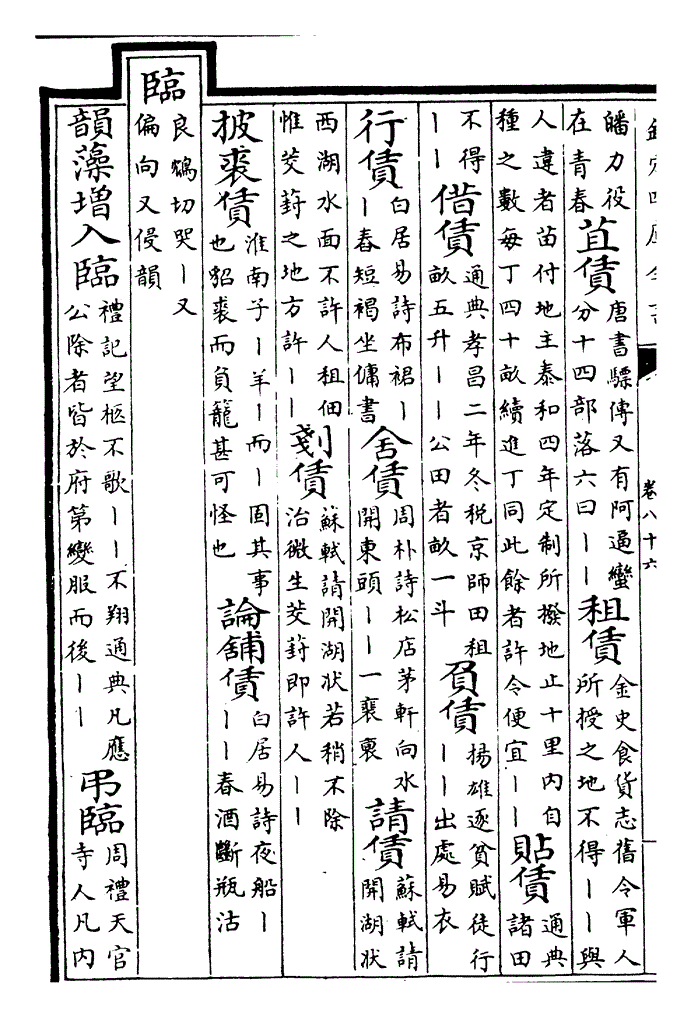 欽定四庫全書 卷八十六
皤力役在青春 苴賃 唐書驃傳又有阿逼蠻分十四部落六曰丨丨 租賃 金史食貨志舊令軍人所授之地不得丨丨與
人違者苗付地主泰和四年定制所撥地止十里内自種之數每丁四十畝續進丁同此餘者許令便宜丨丨 貼賃 通典諸田
不得丨丨 借賃 通典孝昌二年冬税京師田租畝五升丨丨公田者畝一斗 負賃 揚雄逐貧賦徒行丨丨出處易衣
行賃 白居易詩布裙丨丨春短褐坐傭書 舍賃 周朴詩松店茅軒向水開東頭丨丨一裵裏 請賃 蘇軾請開湖狀
西湖水面不許人租佃惟茭葑之地方許丨丨 剗賃 蘇軾請開湖狀若稍不除治微生茭葑即許人丨丨
披裘賃 淮南子丨羊丨而丨固其事也貂裘而負籠甚可怪也 論舖賃 白居易詩夜船丨丨丨春酒斷瓶沽
臨 良鴆切哭丨又偏向又侵韻
韻藻增入臨 禮記望柩不歌丨丨不翔通典凡應公除者皆於府第變服而後丨丨 弔臨 周禮天官寺人凡内